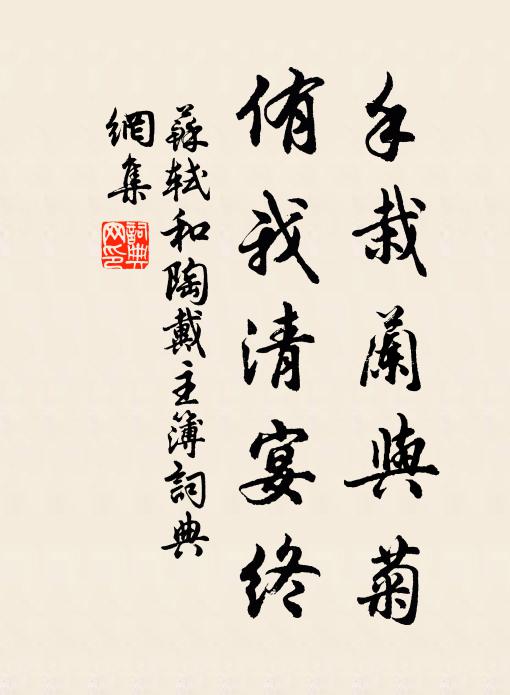 手栽蘭與菊
侑我清宴終
蘇軾和陶戴主簿詞典
網集
詞典
网印